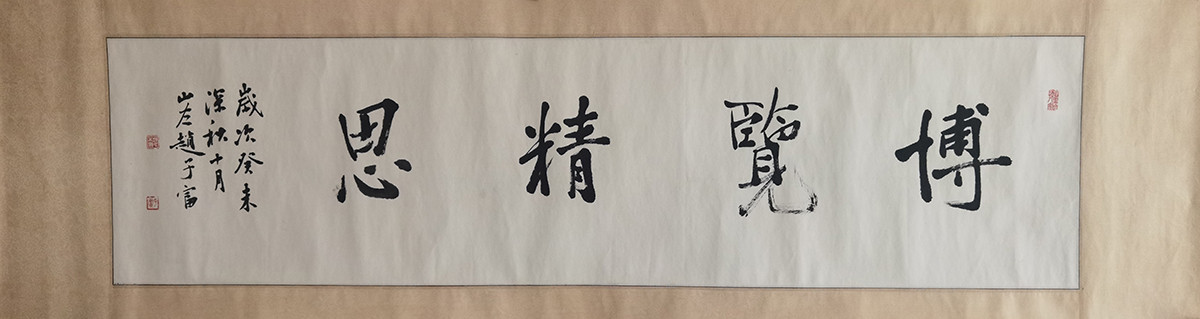 博覽精思
歲次癸未
深秋十月
山左趙子富